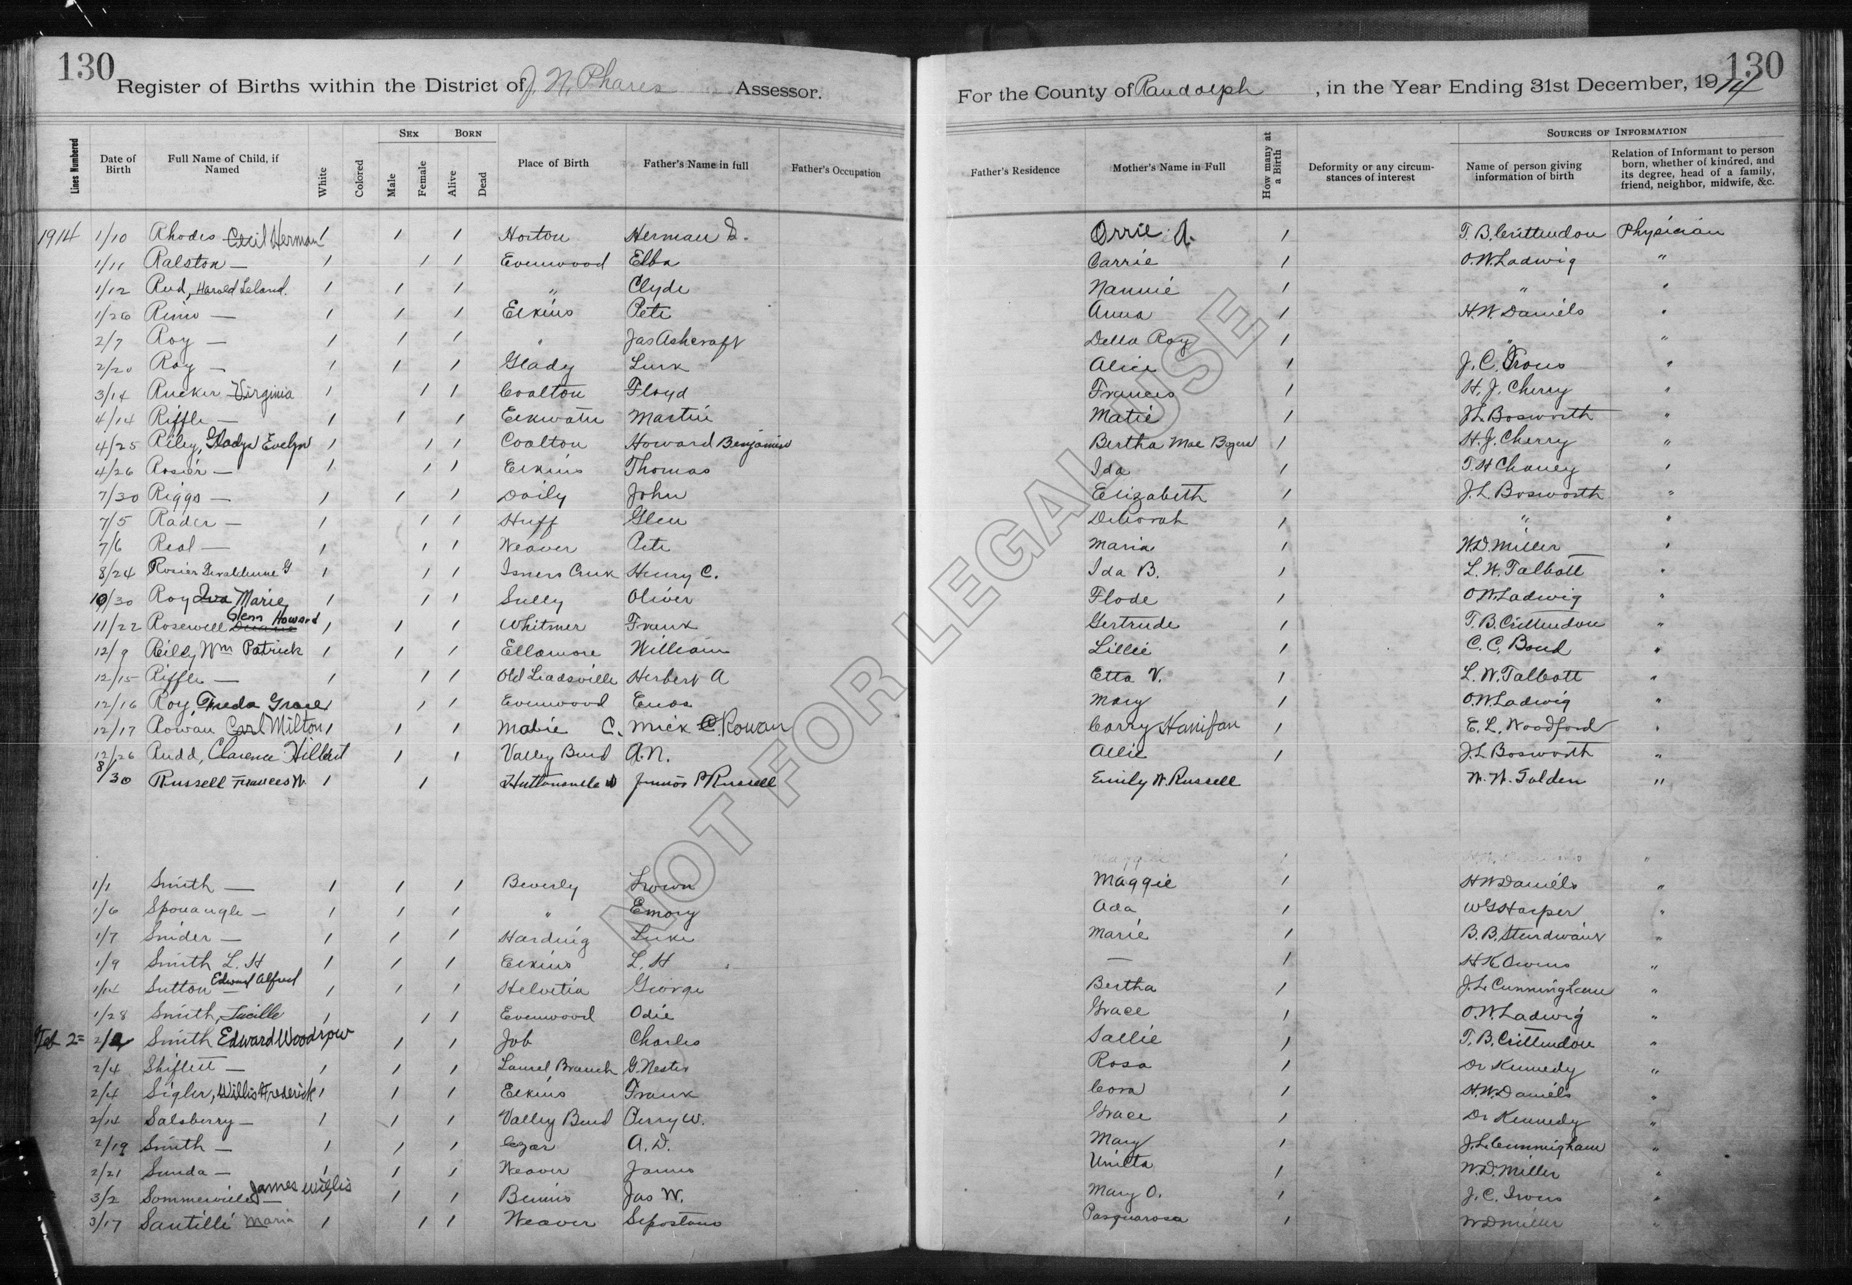 130
130
Register of Births within the District of J. N. Phares Assessor.
For the County of Randolph, in the Year Ending 31st December, 1914
Lines Numbered
Date of Birth
Full Name of Child, if Named
White
Colored
Sex
Male
Female
Born
Alive
Dead
Place of Birth
Father's Name in full
Father's Occupation
Father's Residence
Mother's Name in Full
How many at a Birth
Deformity or any circumstances of interest
Sources of Information
Name of person giving information of birth
Relation of Informant to person born, whether of kindred, and its degree, head of a family, friend, neighbor, midwife, &c.
1914 1/10 Rhodes Cecil Herman 1 1 1 Horton Herman D. Orrie A. 1 T. B. Crittendon Physician
1/11 Ralston — 1 1 1 Evenwood Elba Carrie 1 O. W. Ladwig "
1/12 Rud, Harold Leland. 1 1 1 " Clyde Nannie 1 " "
1/26 — 1 1 1 Elkins Pete Anna 1 H. W. Daniels "
2/7 Roy — 1 1 1 " Jas Ashcraft Della Roy 1 " "
2/20 Roy — 1 1 1 Glady Lurk Alice 1 J. C. Irons "
3/14 Rucker Virginia 1 1 1 Coalton Floyd Frances 1 H. J. Cherry "
4/14 Riffle — 1 1 1 Elkwater Martin Matie 1 J L Bosworth "
4/25 Riley, Gladys Evelyn 1 1 1 Coalton Howard Benjamin Bertha Mae 1 H. J. Cherry "
4/26 Rosier — 1 1 1 Elkins Thomas Ida 1 T. H Chaney "
7/30 Riggs — 1 1 1 Daily John Elizabeth 1 J. L Bosworth "
7/5 Rader — 1 1 1 Huff Glen Deborah 1 " "
7/6 Real — 1 1 1 Weaver Pete Maria 1 W. D. Miller "
8/24 Rosier Geraldinne G 1 1 1 Isners Creek Henry C. Ida B. 1 L. W. Talbott "
10/30 Roy Iva Marie 1 1 1 Sully Oliver Flode 1 O W. Ladwig "
11/22 Rosewell Glenn Howard 1 1 1 Whitmer Frank Gertrude 1 T. B. Crittendon "
12/9 Reiley Wm Patrick 1 1 1 Ellamore William Lillie 1 C. C. Bond "
12/15 Riffle — 1 1 1 Old Leadsville Herbert A Etta V. 1 L. W. Talbott "
12/16 Roy, Freda Grace 1 1 Evenwood Enos Mary 1 O. W Ladwig "
12/17 Rowan Carl Milton 1 1 1 Mabie C. Mick C. Rowan Carry Hanifan 1 E. L. Woodford "
12/26 Rudd, Clarence Hilbert 1 1 Valley Bend A. N. Allie 1 J. L Bosworth "
8/30 Russell Frances W 1 1 Huttonsville Junior P Russell Emily W. Russell W. W. Golden "
Maggie 1 "
1/1 Smith — 1 1 1 Beverly Irowin Maggie 1 H W Daniels "
1/6 Sponaugle — 1 1 1 " Emory Ada 1 W G Harper "
1/7 Snider — 1 1 1 Harding Luke Marie 1 B. B. Sturdivant "
1/9 Smith L. H 1 1 1 Elkins L. H — 1 H K Owens "
1/14 Sutton Edward Alfred 1 1 1 Helvetia George Bertha 1 J. L Cunningham "
1/28 Smith, Lucille 1 1 1 Evenwood Odie Grace 1 O. W. Ladwig "
Feb 2= 2/2 Smith Edward Woodrow 1 1 Job Charles Sallie 1 T. B. Crittendon "
2/4 Shiflett — 1 1 1 Laurel Branch G. Nester Rosa 1 Dr Kennedy "
2/4 Sigler, Willis Frederick 1 1 1 Elkins Frank Cora 1 H. W. Daniels "
2/14 Salsberry — 1 1 1 Valley Bend Perry W. Grace 1 Dr Kennedy "
2/19 Smith — 1 1 1 Czar A. D. Mary 1 J. L. Cunningham "
2/21 Sunda — 1 1 1 Weaver James Unicta 1 W. D. Miller "
3/2 Sommerville James Willis 1 1 Bemis Jas W. Mary O. 1 J. C. Irons "
3/17 Santilli Maria 1 1 1 Weaver Sepostano Pasquarosa 1 W D Miller "
NOT FOR LEGAL USE